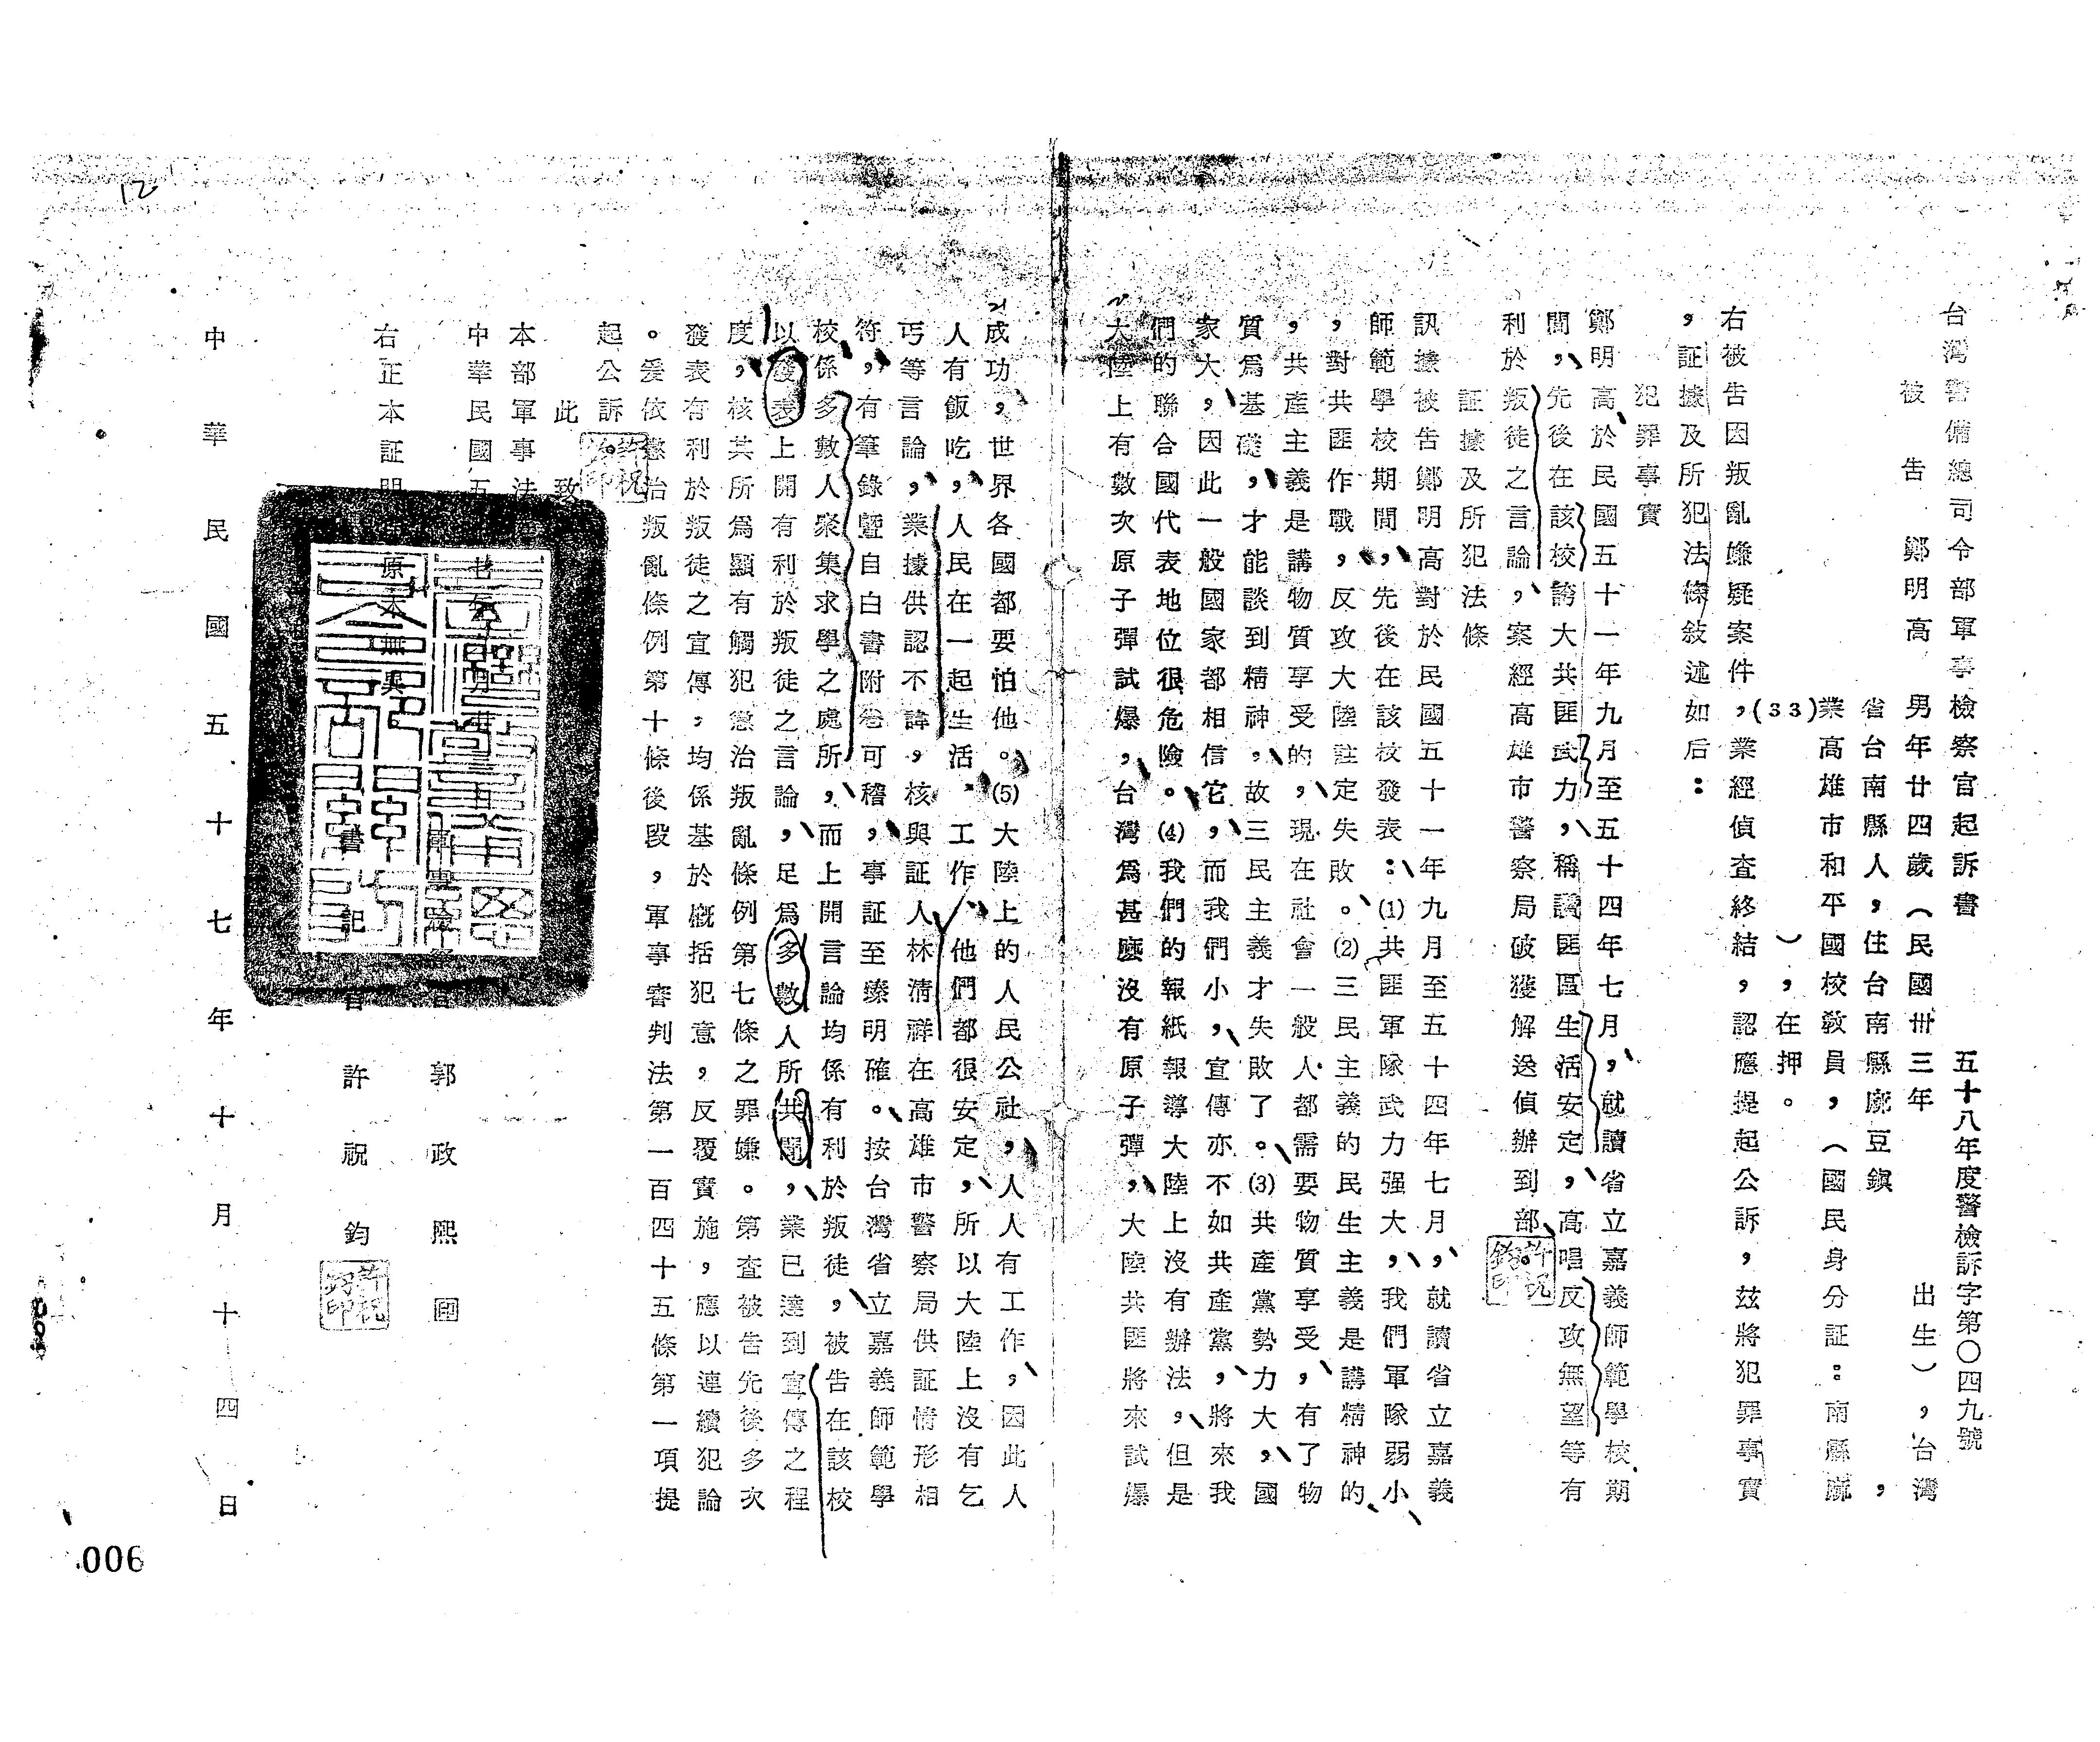 台灣警備總司令部軍事檢察官起訴書
五十八年度警檢訴字第〇四九號
被告 鄭明高 男年廿四歲（民國卅三年 出生），台灣
省台南縣人，住台南縣 豆鎮 ，
業高雄市和平國校教員，（國民身分証：南縣
(33) ），在押。
右被告因叛亂嫌疑案件，業經偵查終結，認應提起公訴，玆將犯罪事實
，証據及所犯法條敍述如后：
犯罪事實
鄭明高於民國五十一年九月至五十四年七月，就讀省立嘉義師範學校期
間，先後在該校誇大共匪武力，稱讚匪區生活安定，高唱反攻無望等有
利於叛徒之言論，案經高雄市警察局破獲解送偵辦到部。
証據及所犯法條
訊據被告鄭明高對於民國五十一年九月至五十四年七月，就讀省立嘉義
師範學校期間，先後在該校發表：(1)共匪軍隊武力强大，我們軍隊弱小
，對共匪作戰，反攻大陸註定失敗。(2)三民主義的民生主義是講精神的
，共產主義是講物質享受的，現在社會一般人都需要物質享受，有了物
質爲基礎，才能談到精神，故三民主義才失敗了。(3)共產黨勢力大，國
家大，因此一般國家都相信它，而我們小，宣傳亦不如共產黨，將來我
們的聯合國代表地位很危險。(4)我們的報紙報導大陸上沒有辦法，但是
大陸上有數次原子彈試爆，台灣爲甚麼沒有原子彈，大陸共匪將來試爆
成功，世界各國都要怕他。(5)大陸上的人民公社，人人有工作，因此人
人有飯吃，人民在一起生活，工作，他們都很安定，所以大陸上沒有乞
丐等言論，業據供認不諱，核與証人林清祥在高雄市警察局供証情形相
符，有筆錄暨自白書附卷可稽，事証至臻明確。按台灣省立嘉義師範學
校係多數人聚集求學之處所，而上開言論均係有利於叛徒，被告在該校
以發表上開有利於叛徒之言論，足爲多數人所共聞，業已達到宣傳之程
度，核其所爲顯有觸犯懲治叛亂條例第七條之罪嫌。第查被告先後多次
發表有利於叛徒之宣傳，均係基於概括犯意，反覆實施，應以連續犯論
。爰依懲治叛亂條例第十條後段，軍事審判法第一百四十五條第一項提
起公訴。
此致
本部軍事法
中華民國五 年 月 日
軍事檢察官 郭政熙
右正本証明 原本無異
書記官 許祝鈞
中華民國五十七年十月十四日
許祝鈞印
12
006